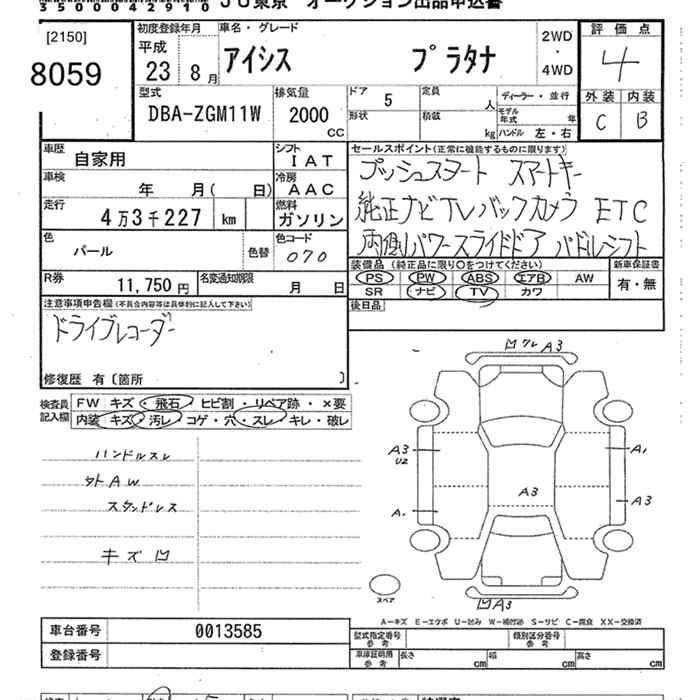 35000042910 JU東京 オークション出品申込書
[2150]
8059
初度登録年月
平成
23 8月
車名・グレード
アイシス プラタナ
2WD
・
4WD
評価点
4
外装 内装
C B
型式
DBA-ZGM11W
排気量
2000
CC
ドア
5
形状
定員
人
積載
kg
ディーラー・並行
モデル年式 年
ハンドル 左・右
車歴
自家用
シフト
IAT
車検
年 月( 日)
冷房
AAC
走行
4万3千227 km
燃料
ガソリン
色
パール
色替
色コード
070
R券
11,750円
名変通知期限
月 日
セールスポイント(正常に機能するものに限ります)
プッシュスタート スマートキー
純正ナビTVバックカメラ ETC
両側パワースライドドア パドルシフト
装備品 (純正品に限り○をつけてください)
PS PW ABS エアB AW
SR ナビ TV カワ
新車保証書
有・無
後日品
注意事項申告欄(不具合内容等は具体的に記入して下さい)
ドライブレコーダー
修復歴 有〔箇所 〕
検査員記入欄
FW キズ・飛石・ヒビ割・リペア跡・×要
内装 キズ・汚レ・コゲ・穴・スレ・キレ・破レ
ハンドルスレ
外AW
スタッドレス
キズ凹
凹ワレ A3
A3
U2
A1
A3
A3
凹A3
スペア
A-キズ E-エクボ U-凹み W-補修跡 S-サビ C-腐食 XX-交換済
車台番号
0013585
登録番号
型式指定番号
参考
類別区分番号
参考
車庫証明用
参考
長さ cm
幅 cm
高さ cm